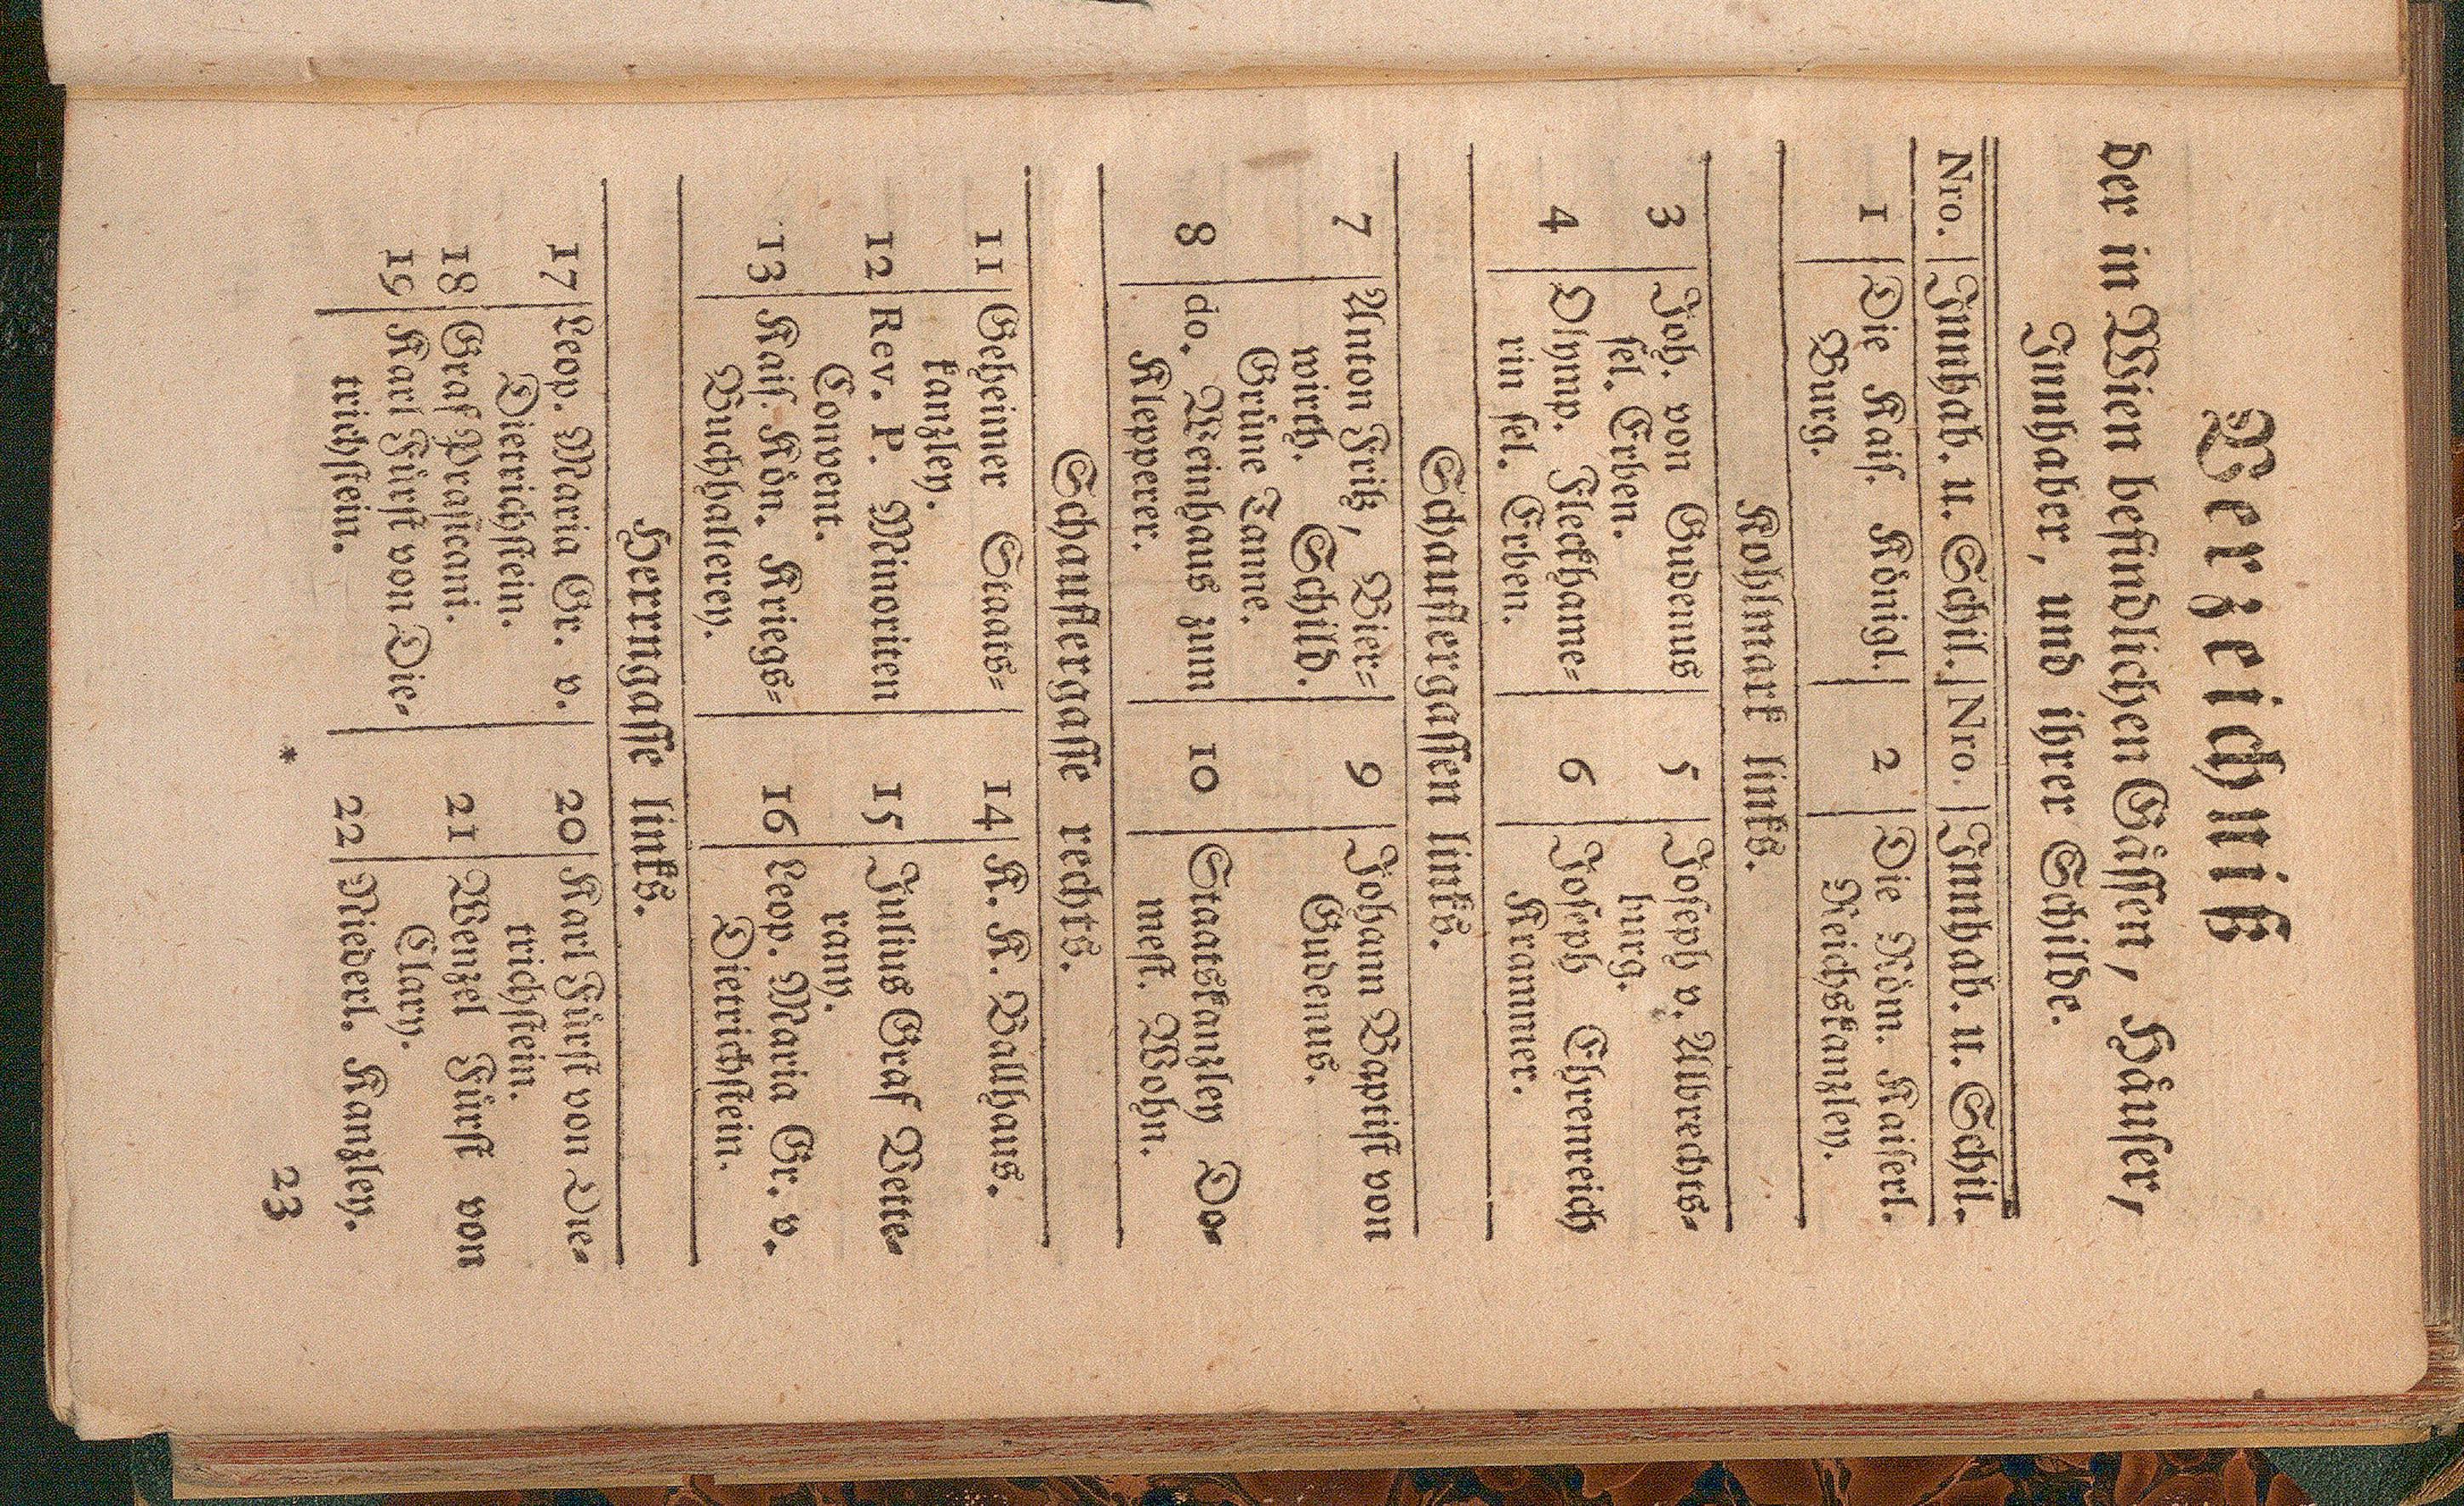 Verzeichniß
der in Wien befindlichen Gässen, Häuser,
Innhaber, und ihrer Schilde.
Nro. Innhab. u. Schil.
1 Die Kais. Königl.
Burg.
Nro. Innhab. u. Schil.
2 Die Röm. Kaiserl.
Reichskanzley.
Kohlmark links.
3 Joh. von Gudenus
sel. Erben.
4 Olymp. Fleckhame=
rin sel. Erben.
5 Joseph v. Albrechts=
burg.
6 Joseph Ehrenreich
Krammer.
Schauflergassen links.
7 Anton Fritz, Bier=
wirth. Schild.
Grüne Tanne.
8 do. Weinhaus zum
Klepperer.
9 Johann Baptist von
Gudenus.
10 Staatskanzley Do=
mest. Wohn.
Schauflergasse rechts.
11 Geheimer Staats=
kanzley.
12 Rev. P. Minoriten
Convent.
13 Kais. Kön. Kriegs=
Buchhalterey.
14 K. K. Ballhaus.
15 Julius Graf Vette=
rany.
16 Leop. Maria Gr. v.
Dietrichstein.
Herrngasse links.
17 Leop. Maria Gr. v.
Dietrichstein.
18 Graf Prascani.
19 Karl Fürst von Die=
trichstein.
20 Karl Fürst von Die=
trichstein.
21 Wenzel Fürst von
Clary.
22 Niederl. Kanzley.
* 23